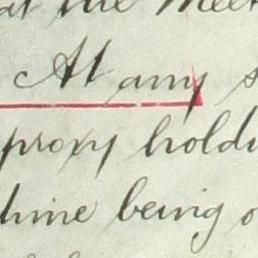 at the Meet
At any s
proxy holdi
hine being o